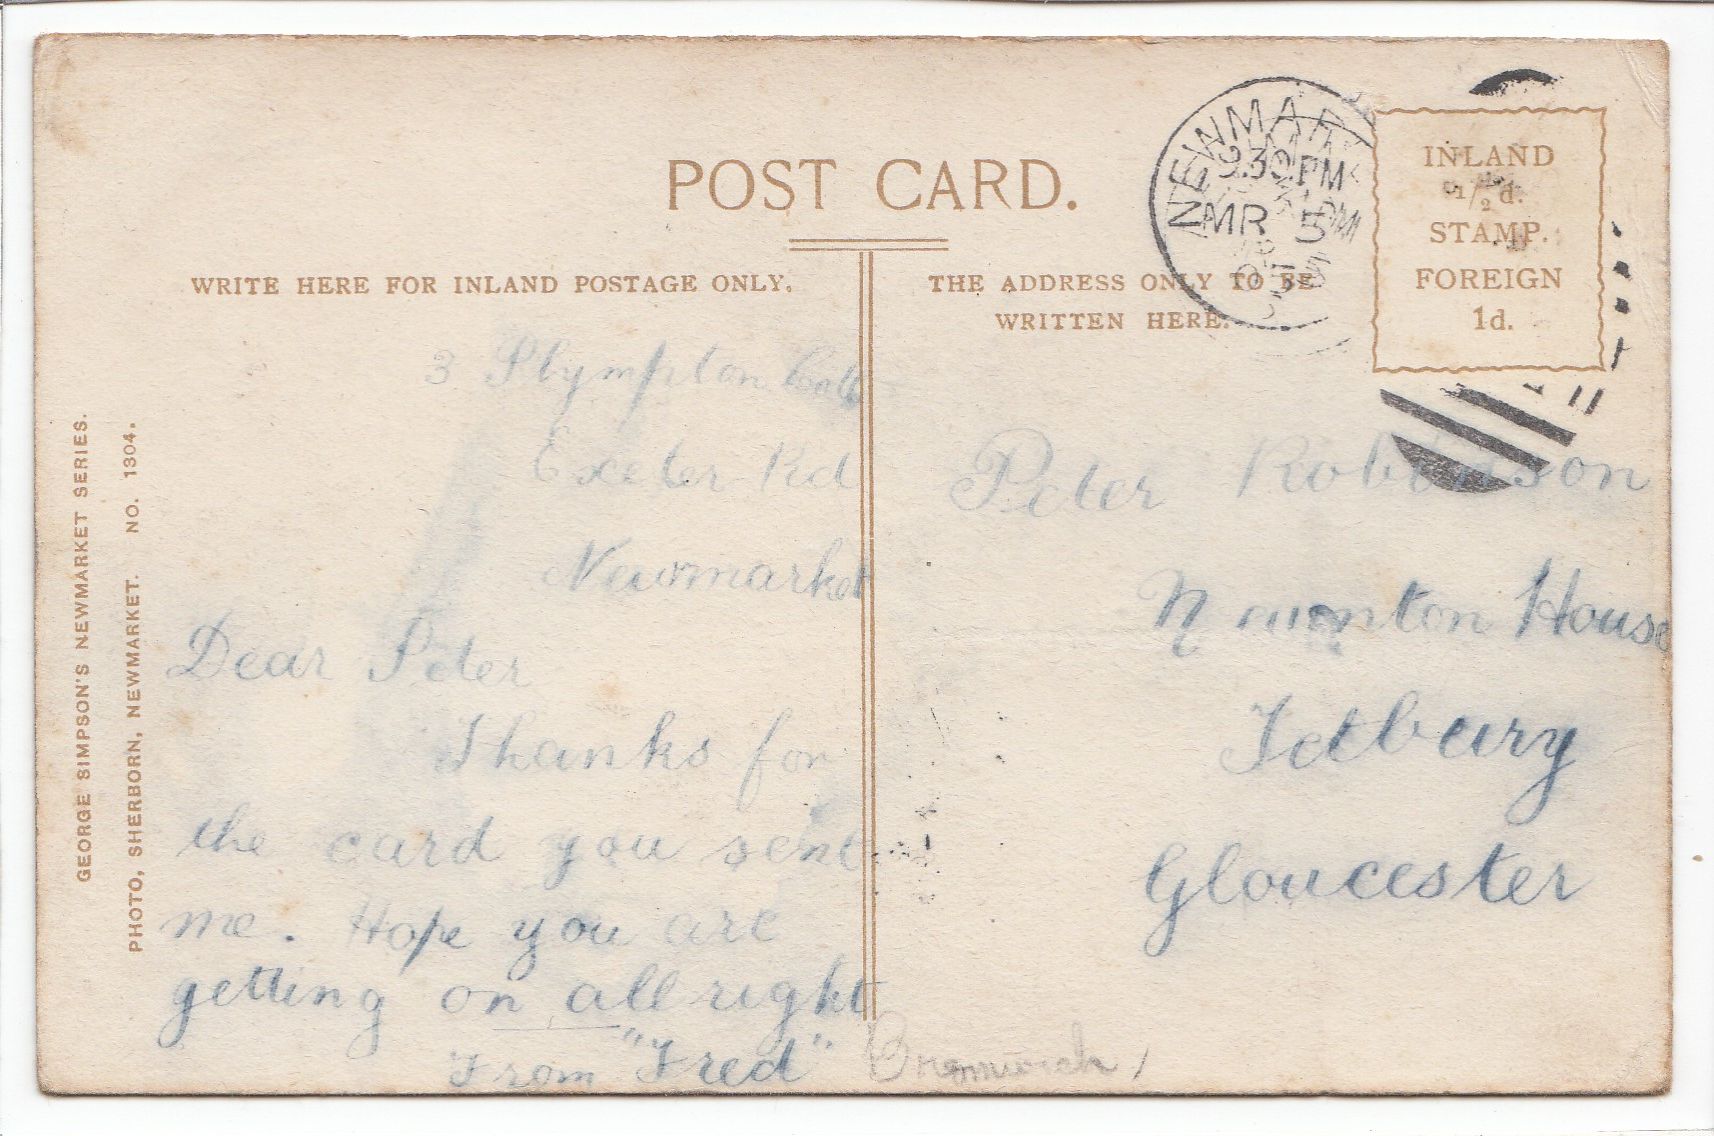 POST CARD.
WRITE HERE FOR INLAND POSTAGE ONLY.
THE ADDRESS ONLY TO BE
WRITTEN HERE.
INLAND
1/2 d.
STAMP.
FOREIGN
1d.
NEWMARK
30 PM
MR 5
GEORGE SIMPSON'S NEWMARKET SERIES.
PHOTO, SHERBORN, NEWMARKET. NO. 1304.
3 Plympton Cott
Exeter Rd
Newmarket
Dear Peter
Thanks for
the card you sent
me. Hope you are
getting on all right
From "Fred"
Peter Robinson
House
Tetbury
Gloucester